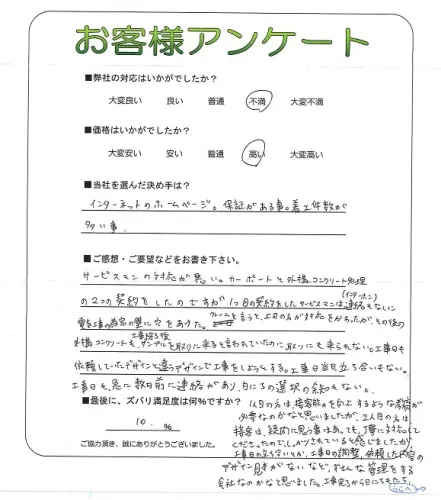 お客様アンケート
■弊社の対応はいかがでしたか?
大変良い 良い 普通 不満 大変不満
■価格はいかがでしたか?
大変安い 安い 普通 高い 大変高い
■当社を選んだ決め手は?
インターネットのホームページ。保証がある事。着工件数が
多い事。
■ご感想・ご要望などをお書き下さい。
サービスマンの対応が悪い。カーポートと外構コンクリート処理
(インターホン)
の2つの契約をしたのですが1つ目の契約をしたサービスマンは連絡もなしに
電気工事の為家の壁に穴をあけた。クレームを言うと、上の方が対応をかわったが、その後の
工事終了後
外構コンクリートも、サンプルを取りに来ると言われていたのに取りにも来られない。工事日も
依頼していたデザインと違うデザインで工事をしようとする。工事日当日立ち合いもない。
工事日も、急に数日前に連絡があり、日にちの選択の余地もない。
■最後に、ズバリ満足度は何%ですか?
10. %
ご協力頂き、誠にありがとうございました。
1人目の方は、接客能力を向上するような教育が
必要なのかなと思いましたが、2人目の方は
接客は、疑問に思う事はあっても、丁寧に対応して
くださったのでしっかりとされていると感じましたが
工事日の立ち合いとか、工事日の調整、依頼した内容の
デザイン見本がないなど、ずさんな管理をする
会社なのかなと思いました。工事完了から日にちもたち、